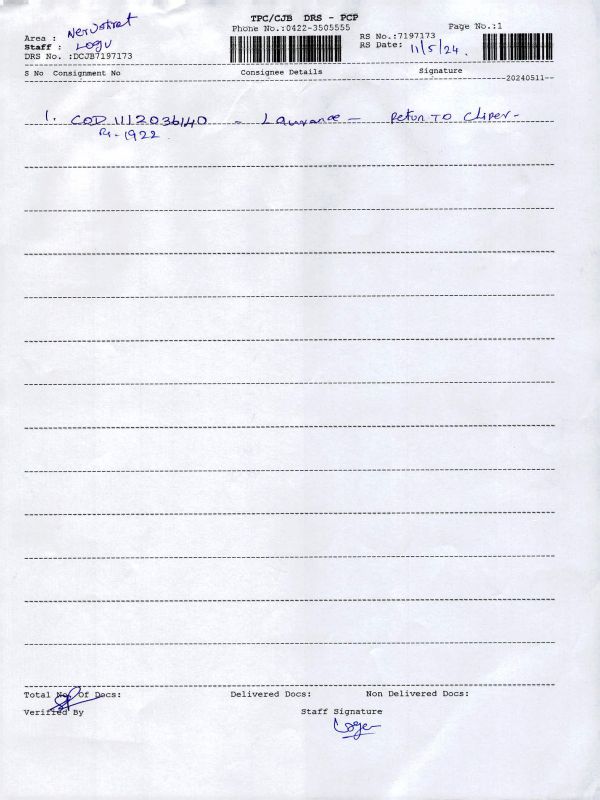 TPC/CJB DRS - PCP
Phone No.:0422-3505555
Page No.:1
Area :
Staff : Logu
DRS No. :DCJB7197173
RS No.:7197173
RS Date: 11/5/24.
S No Consignment No Consignee Details Signature
--20240511--
1. COD 1112036140 - Laurance - Return TO
Rs-1922
Total No. Of Docs: Delivered Docs: Non Delivered Docs:
Verified By Staff Signature